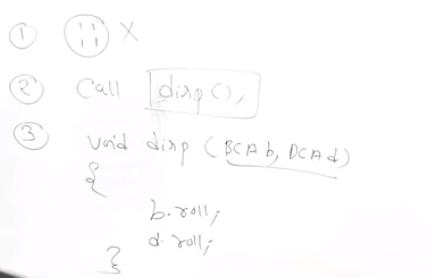 ① :: X
② Call disp(),
③ void disp (BCA b, DCA d)
{
b.roll;
d.roll;
}